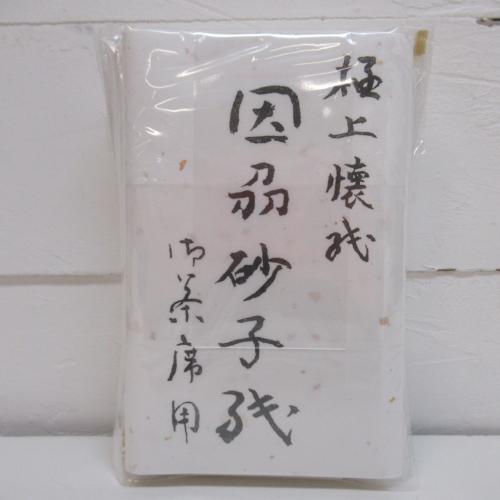 極上懐紙
因州砂子紙
御茶席用